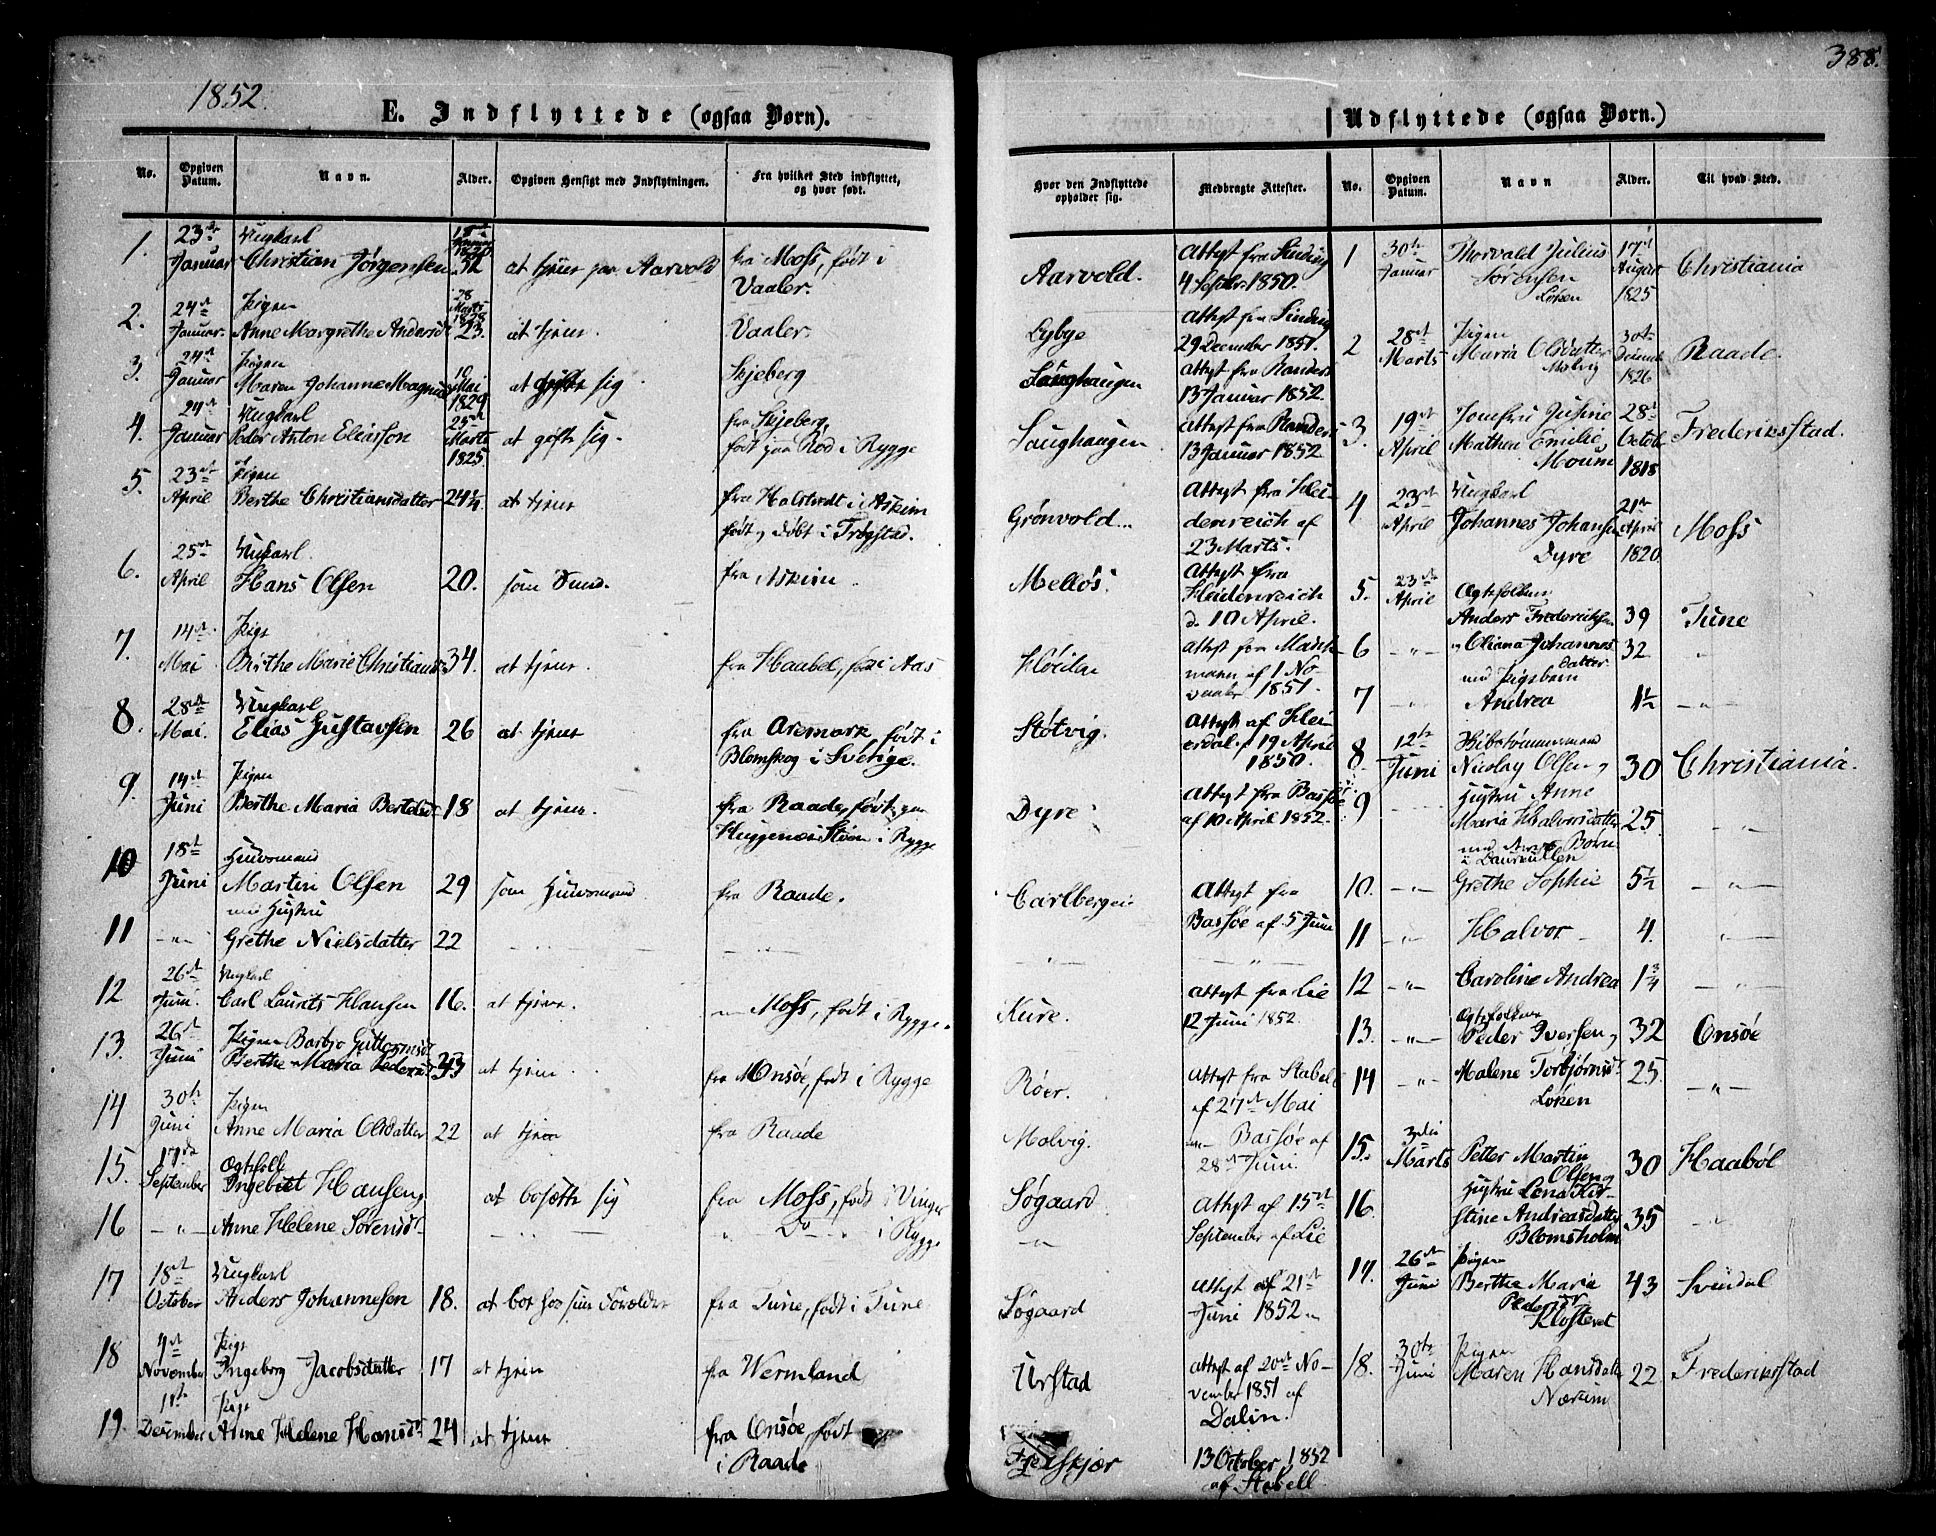 1852.
388.
E. Indflyttede (ogsaa Børn).
No. Opgiven Datum. Navn. Alder. Opgiven Hensigt med Indflytningen. Fra hvilket Sted indflyttet, og hvor født.
Hvor den Indflyttede opholder sig. Medbragte Attester.
1. 23de Januar Ungkarl Christian Jørgensen 32 at tjene paa Aarvold fra Moss, født i Vaaler. Aarvold. Attest fra Sinding 4 Septbr. 1850.
2. 24de Januar. Pigen Anne Margrethe Andersd. 28 Marts 1828 23. at tjene. Vaaler. Attest fra Sinding 29 December 1851.
3. 24de Januar Pigen Maren Johanne Magnusd. 10 Mai 1829 at gifte sig. Skjeberg Sanghaugen Attest fra Randers 13 Januar 1852.
4. 24de Januar Ungkarl Peder Anton Eliasson 25de Marts 1825 at gifte sig. fra Skjeberg, født paa Rød i Rygge Sanghaugen Attest fra Randers 13 Januar 1852
5. 23de April Pigen Berthe Christiansdatter 24½ at tjene fra Halstvedt i Askim født og døbt i Trøgstad. Grønvold Attest fra Heidenreich af 23 Marts.
6. 25de April Ungkarl. Hans Olsen 20. som Svend. fra Askim. Melløs. Attest fra Heidenreich d. 10 April.
7. 14de Mai Pige Birthe Marie Christiansd. 34. at tjene. fra Haabøl, født i Aas Attest fra mann af 1 November 1851.
8. 28de Mai. Ungkarl Elias Gustavsen 26 at tjene fra Aremark, født i Blomskog i Sverige. Støtvig. Attest af 19 April 1850.
9. 14de Juni Pigen Berthe Maria Bertelsd. 18 at tjene. fra Raade, født paa Huggenæs i Rygge Dyre. Attest fra Bassøe af 10 April 1852.
10 18de Juni Huusmand Martin Olsen med Hustru 29 som Huusmand fra Raade. Carlberg Attest fra Bassøe af 5 Juni
11 Grethe Nielsdatter 22
12 26de Juni. Ungkarl Carl Laurits Hansen 16. at tjene. Moss, født i Rygge. Kure. Attest fra Lie 12 Juni 1852.
13. 26de Juni Pigen Barbro Guttormsd. Berthe Maria Pedersd. 43 at tjene fra Onsøe, født i Rygge Røer. Attest fra Stabell af 27de Mai
14 30te Juni Pigen Anne Maria Olsdatter 22 at tjene fra Raade Molvig. Bassøe af 28de Juni.
15. 17de September Ægtefolk Ingebret Hansen og at bosætte sig fra Moss, født i Vinger Søgaard Attest af 15de September af Lie
16 Anne Helene Sørensd. Do i Rygge
17. 18de October Ungkarl Anders Johannesen 18. at boe hos sine Forældre fra Tune, født i Tune Søgaard Attest af 21de Juni 1852.
18 4de November Pige Ingeborg Jacobsdatter 17 at tjene fra Wermland Urstad Attest af 20de November 1851 af Dalin.
19. 11te December Pige Anne Helene Hansd. 24 at tjene fra Onsøe, født i Raade skjær 13 October 1852 af Stabell
Udflyttede (ogsaa Børn.)
No. Opgiven Datum. Navn Alder. Til hvad Sted.
1 30te Januar Thorvald Julius Sørensen Løken 17de August 1825 Christiania
2 28de Marts Pigen Maria Olsdatter Molvig 30te December 1826 Raade.
3. 19de April Jomfru Jusine Mathea Emilie Moum 28de October 1818 Frederiksstad.
4 23de April Ungkarl Johannes Johansen Dyre 21de April 1820. Moss
5. 23de April Ægtefolkene Anders Frederiksen 39 Tune
6 og Oliana Johannesdatter med Pigebarn 32
7 Andrea 1½
8. 12te Juni Nicolay Olsen og 30 Christiania.
9 Hustru Anne Maria Halvorsdatter med Børn 25
10. Grethe Sophie 5½
11 Halvor 4.
12 Caroline Andrea 1¾
13. Ægtefolkene Peder Iversen og 32 Onsøe
14 Malene Torbjørnsd. Løken 25
15. 3die Marts Petter Martin Olsen og 30 Haabøl
16 Hustru Lena Kirstine Andreasdatter Blomsholm 35
17. 26de Juni Pigen Berthe Maria Pedersd. Klosteret 43 Svindal
18. 30te Juni Pigen Maren Hansdatter Nærum 22 Frederiksstad